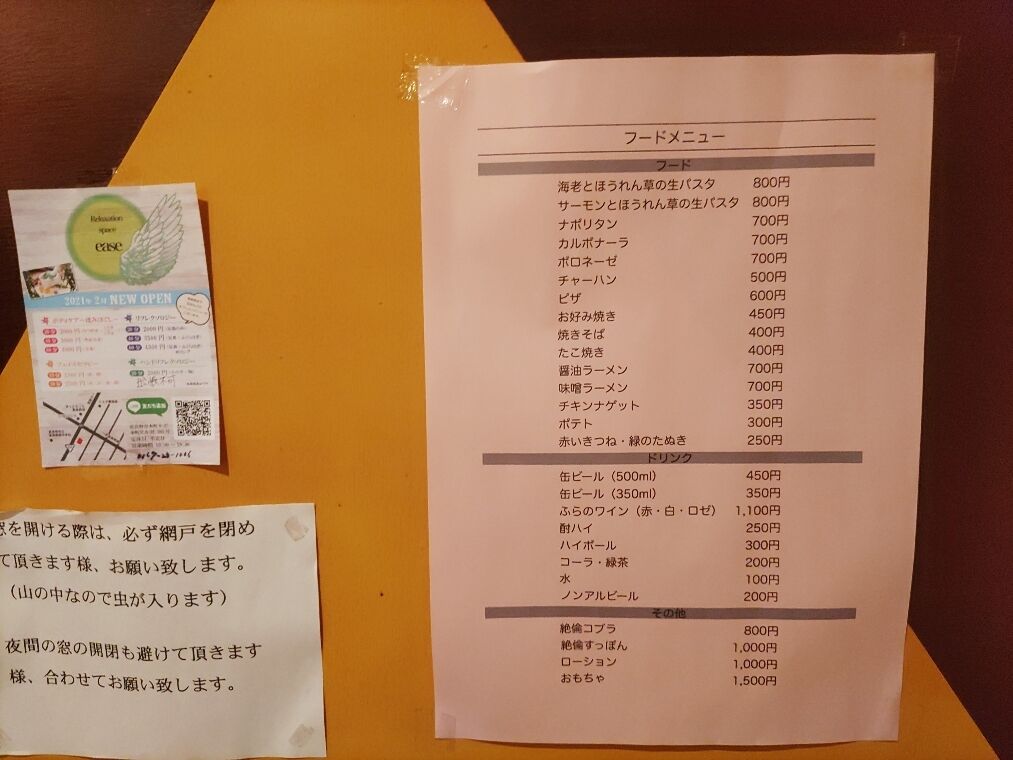 フードメニュー
フード
海老とほうれん草の生パスタ 800円
サーモンとほうれん草の生パスタ 800円
ナポリタン 700円
カルボナーラ 700円
ボロネーゼ 700円
チャーハン 500円
ピザ 600円
お好み焼き 450円
焼きそば 400円
たこ焼き 400円
醤油ラーメン 700円
味噌ラーメン 700円
チキンナゲット 350円
ポテト 300円
赤いきつね・緑のたぬき 250円
ドリンク
缶ビール（500ml） 450円
缶ビール（350ml） 350円
ふらのワイン（赤・白・ロゼ） 1,100円
酎ハイ 250円
ハイボール 300円
コーラ・緑茶 200円
水 100円
ノンアルビール 200円
その他
絶倫コブラ 800円
絶倫すっぽん 1,000円
ローション 1,000円
おもちゃ 1,500円
Relaxation
space
ease
2021年2月 NEW OPEN
リフレクソロジー
ハンドリフレクソロジー
窓を開ける際は、必ず網戸を閉め
て頂きます様、お願い致します。
（山の中なので虫が入ります）
夜間の窓の開閉も避けて頂きます
様、合わせてお願い致します。